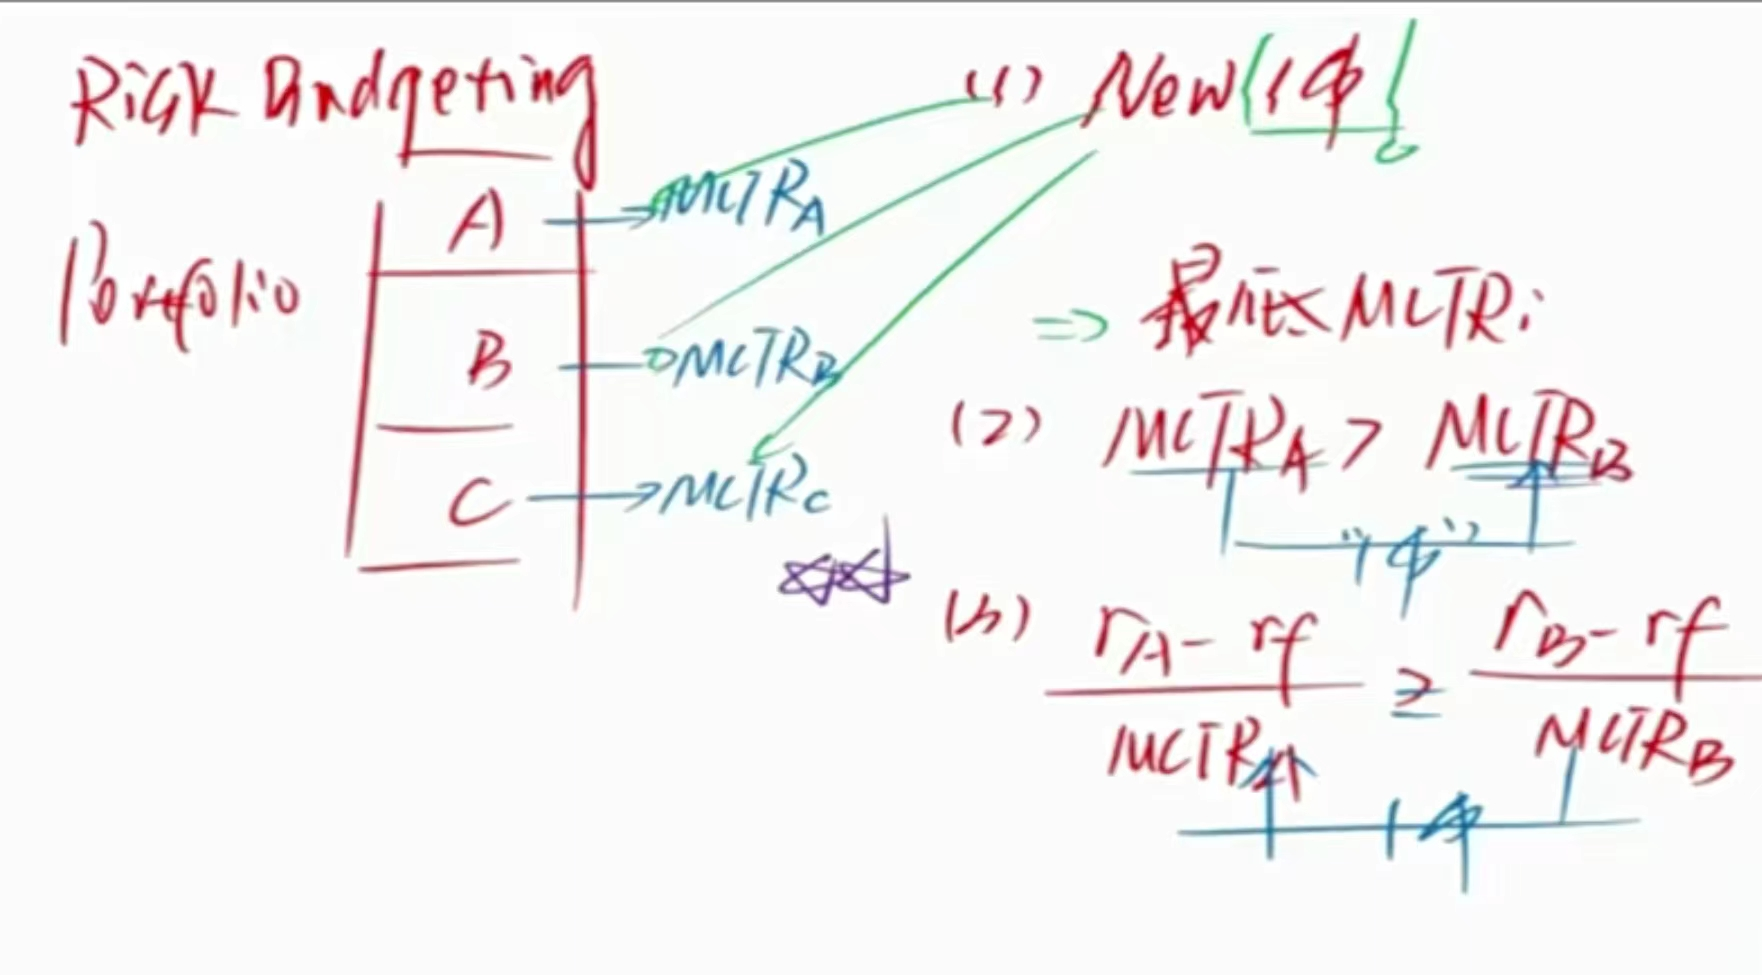 Risk Budgeting
Portfolio
A → MCTR_A
B → MCTR_B
C → MCTR_C
(1) New 1$
⇒ 最低 MCTRi
(2) MCTR_A > MCTR_B
"1$"
(3) (r_A - rf) / MCTR_A ≥ (r_B - rf) / MCTR_B
1$